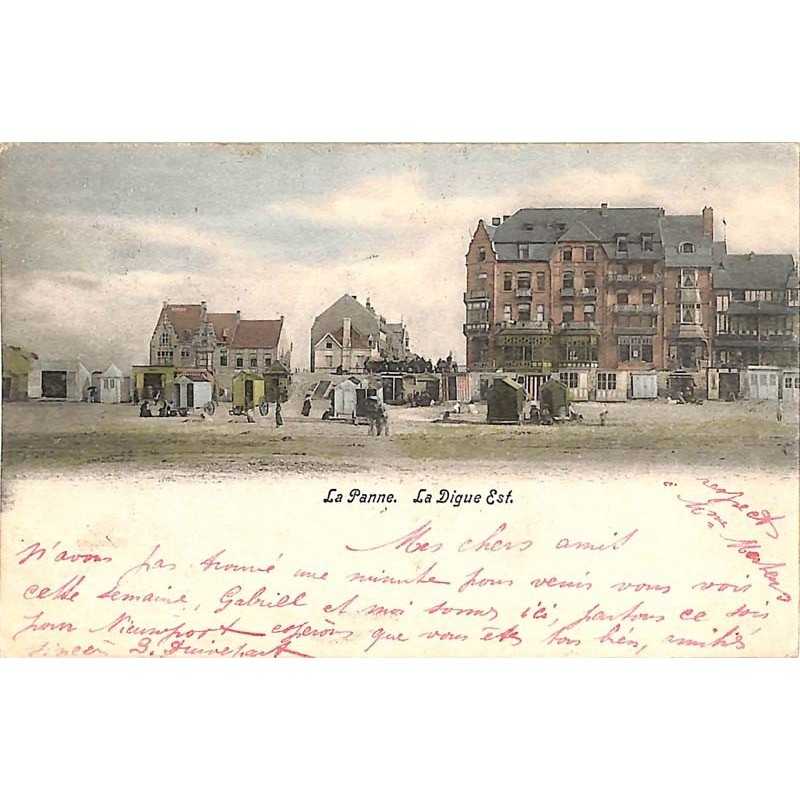 La Panne. La Digue Est.
respects
à Mme Mertens
Mes chers amis
n'avons pas trouvé une minute pour venir vous voir
cette semaine, Gabriell et moi somes ici, partons ce soir
pour Nieuwport espérons que vous êtes tous bien, amitiés
sincèr